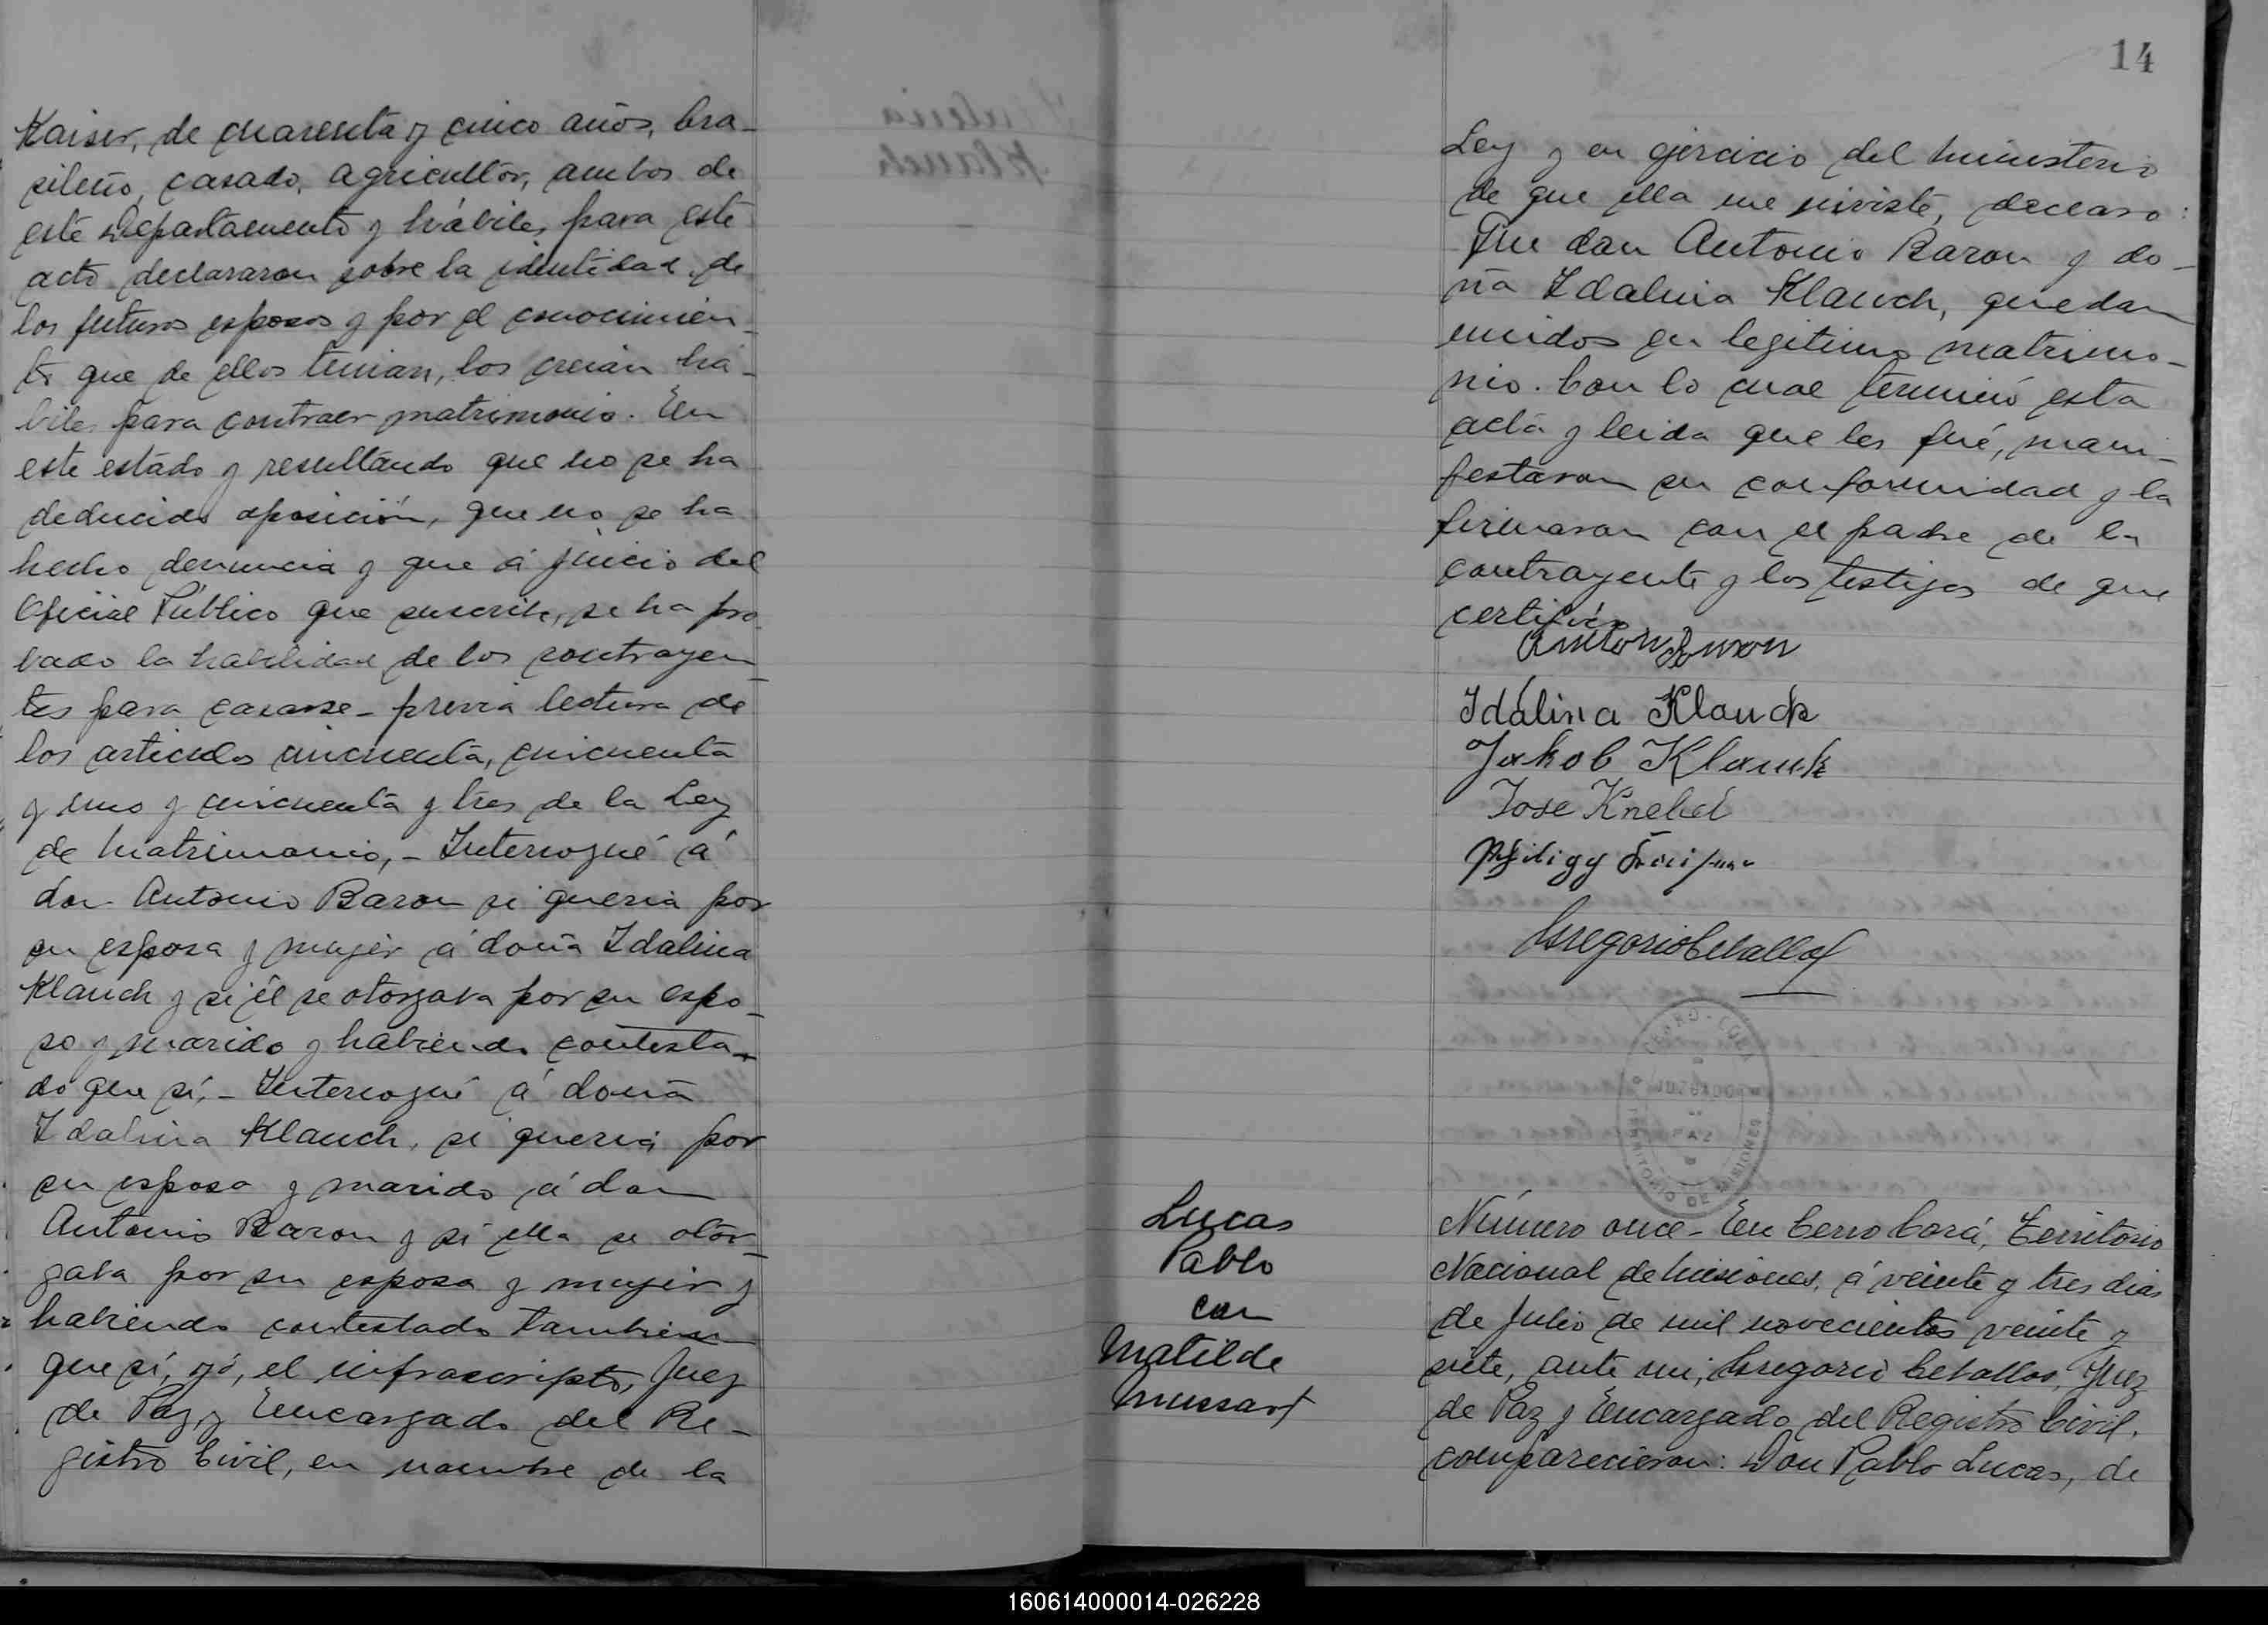 Kaiser, de cuarenta y cinco años, bra-
sileño, casado, agricultor, ambos de
este Departamento y hábiles para este
acto declararon sobre la identidad de
los futuros esposos y por el conocimien-
to que de ellos tenian, los creian há-
biles para contraer matrimonio. En
este estado y resultando que no se ha
deducido oposición, que no se ha
hecho denuncia y que á juicio del
Oficial Público que suscribe, se ha pro
bado la habilidad de los contrayen-
tes para casarse - previa lectura de
los articulos cincuenta, cincuenta
y uno y cincuenta y tres de la Ley
de Matrimonio, - Interrogué á
don Antonio Baron si queria por
su esposa y mujer á doña Idalina
Klauch y si él se otorgaba por su espo-
so y marido y habiendo contesta-
do que sí, - Interrogué á doña
Idalina Klauch, si queria por
su esposo y marido á don
Antonio Baron y si ella se otor-
gaba por su esposa y mujer y
habiendo contestado tambien
que sí, yó, el infrascripto, Juez
de Paz y Encargado del Re-
gistro Civil, en nombre de la
14
Ley y en ejercicio del ministerio
de que ella me inviste, declaro:
Que don Antonio Baron y do-
ña Idalina Klauch, quedan
unidos en legitimo matrimo-
nio. Con lo cual terminó esta
acta y leida que les fué, mani-
festaron su conformidad y la
firmaron con el padre de la
contrayente y los testigos de que
certifico
Idalina Klauck
Jakob Klauck
Jose Knebel
Gregorio Ceballos
CERRO-CORÁ
JUZGADO DE
PAZ
TERRITORIO DE MISIONES
Lucas
Pablo
con
Matilde
Mussart
Número once - En Cerro Corá, Territorio
Nacional de Misiones, á veinte y tres dias
de Julio de mil novecientos veinte y
siete, ante mi, Gregorio Ceballos, Juez
de Paz y Encargado del Registro Civil,
comparecieron: Don Pablo Lucas, de
160614000014-026228